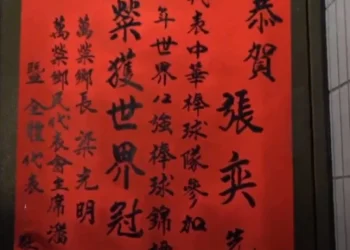 恭賀 張奕
代表中華棒球隊參加
年世界12強棒球錦標
榮獲世界冠
萬榮鄉長 梁光明
萬榮鄉民代表會主席潘
暨 全體代表